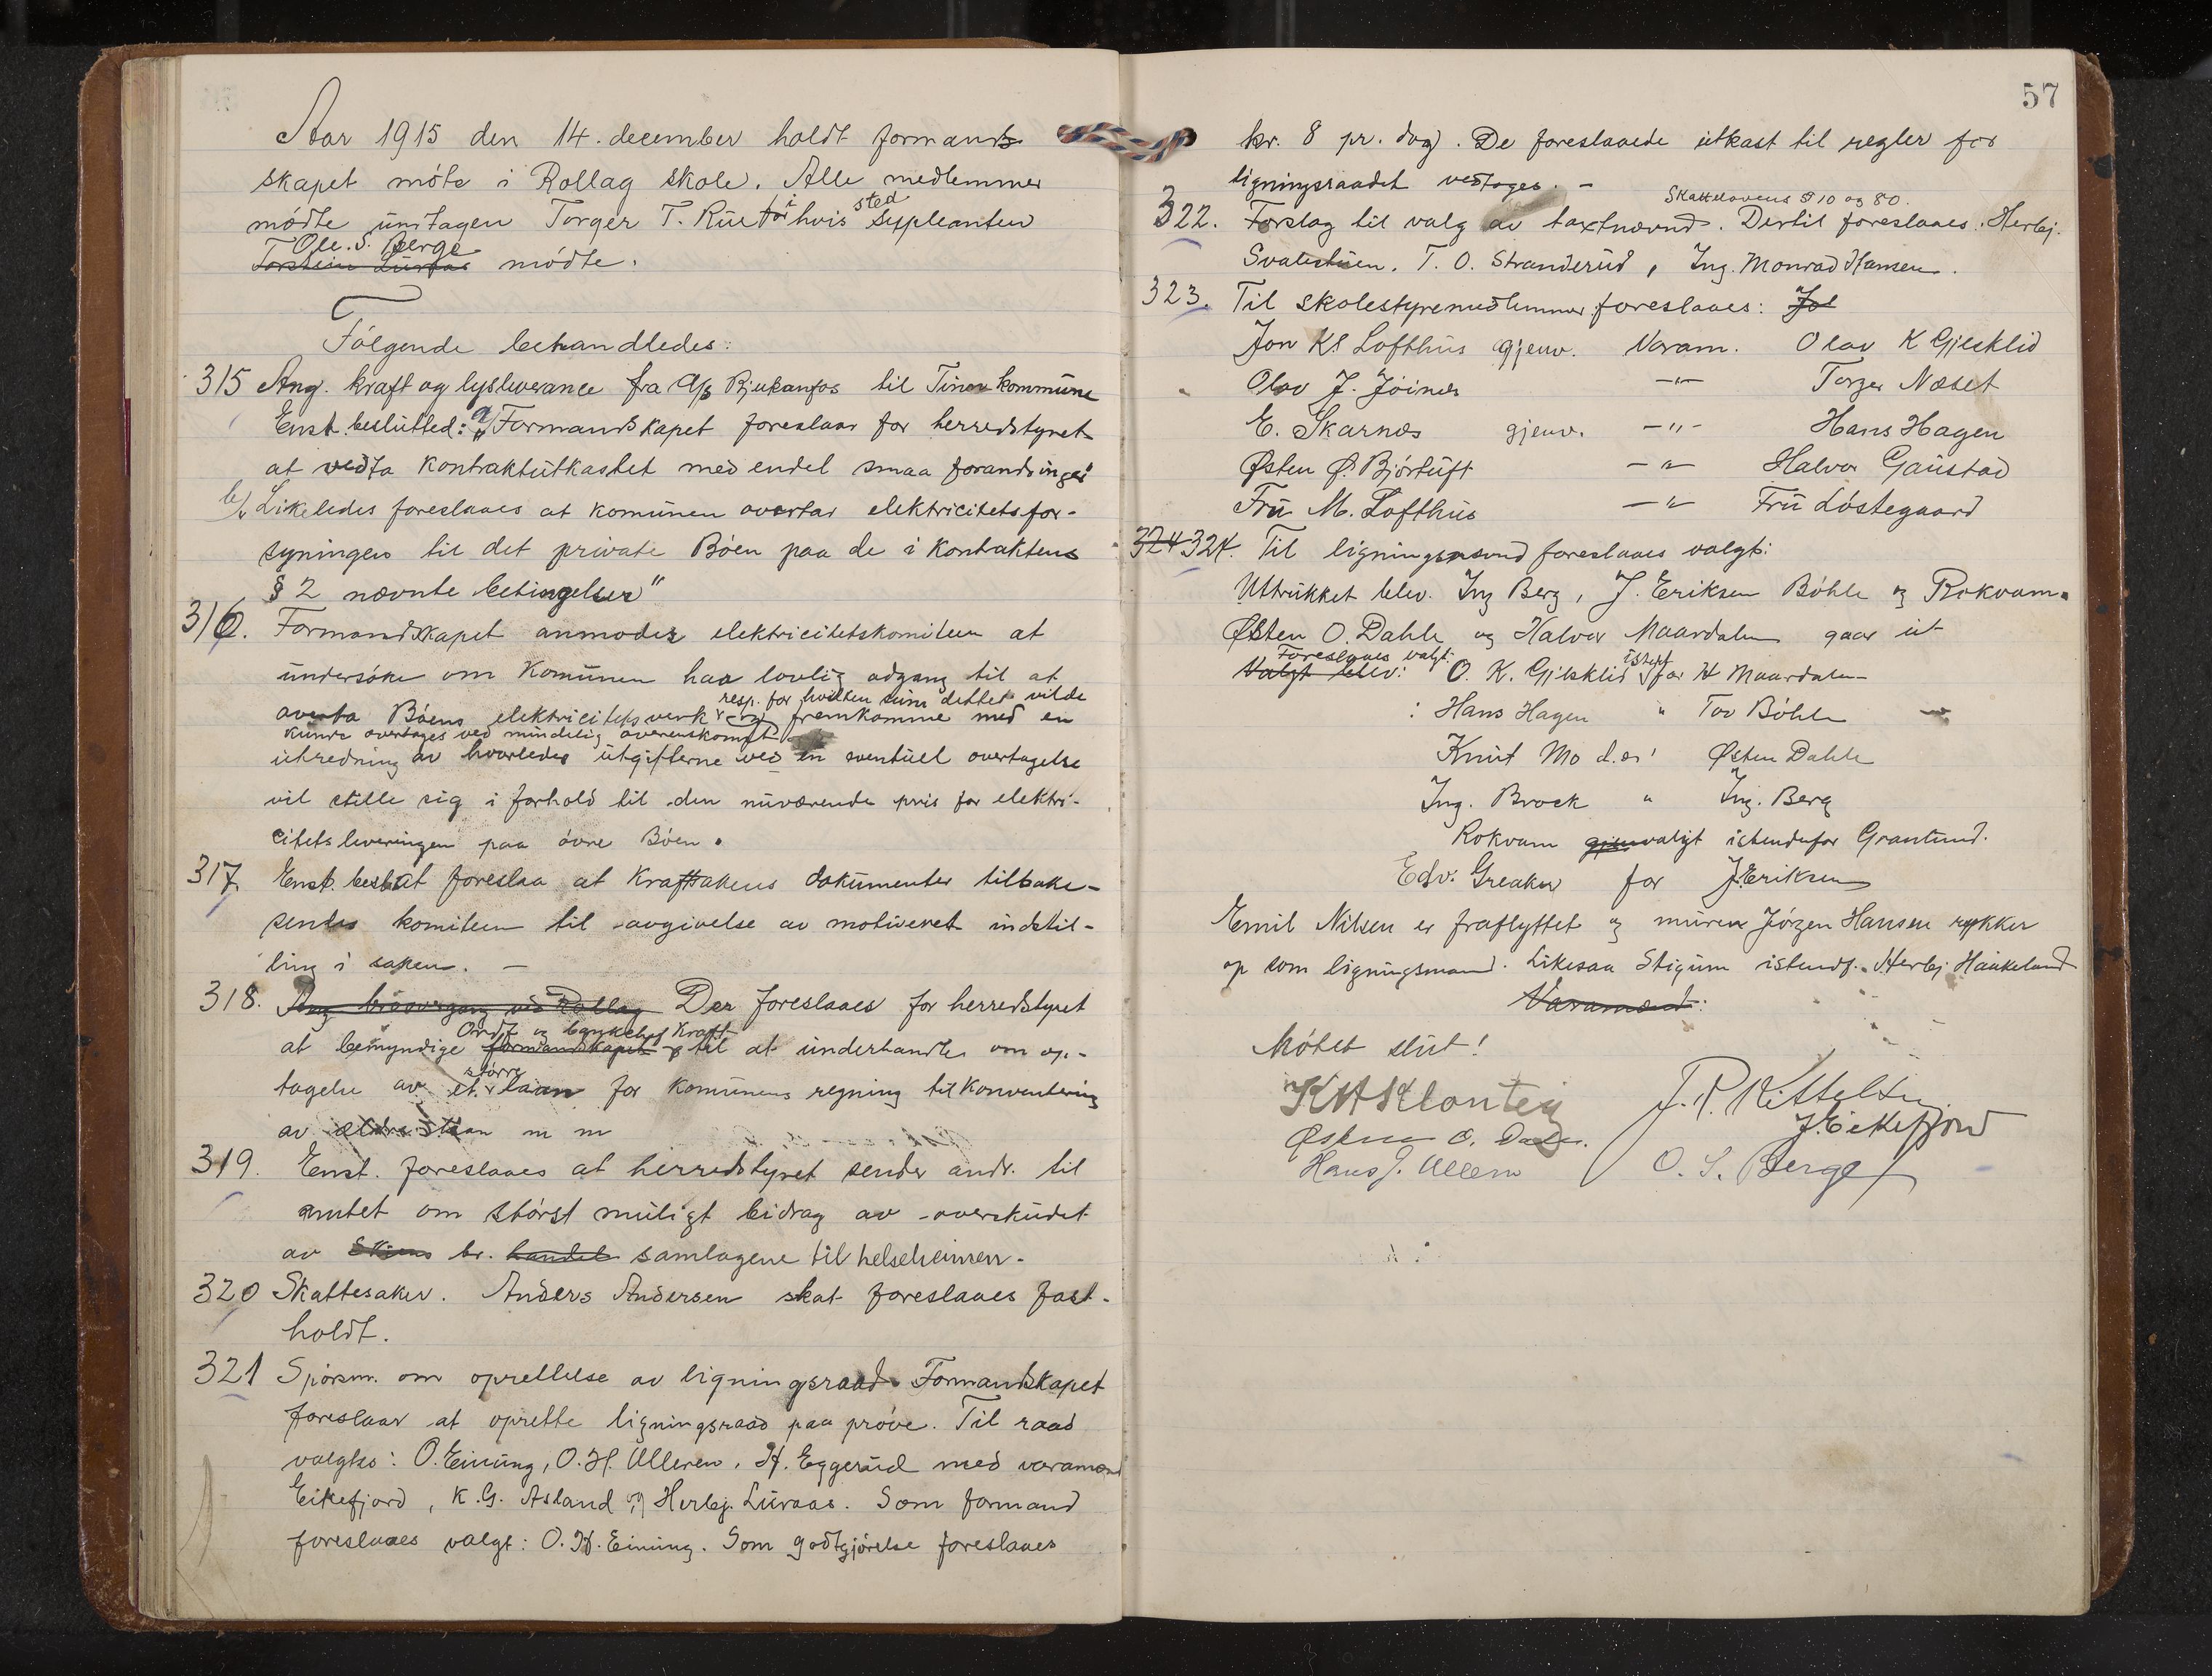 Aar 1915 den 14. december holdt formand-
skapet møte i Rollag skole. Alle medlemmer
mødte undtagen Torger T. Rue for i hvis sted supleanten
Torstein Luraas Ole. S. Berge mødte.
Følgende behandledes:
315 Ang. kraft og lysleverance fra A/S Rjukanfos til Tinn kommune
Enst. beslutted: a) „Formandskapet foreslaar for herredstyret
at vedta kontraktutkastet med endel smaa forandringer"
b) „Likeledes foreslaaes at komunen overtar elektricitetsfor-
syningen til det private Bøen paa de i kontraktens
§ 2 nævnte betingelser"
316. Formandskapet anmoder elektricitetskomiteen at
undersøke om komunen har lovlig adgang til at
overta Bøens elektricitetsverk resp. for hvilken sum dettet vilde
kunne overtages ved mindelig overenskomst og fremkomme med en
utredning av hvorledes utgifterne ved en eventuel overtagelse
vil stille sig i forhold til den nuværende pris for elektri-
citetsleveringen paa øvre Bøen.
317. Enst. beslut foreslaa at kraftsakens dokumenter tilbake-
sendes komiteen til avgivelse av motiveret indstil-
ling i saken. —
318. Ang. broovergang ved Rollag Der foreslaaes for herredstyret
at bemyndige formandskapet Ordf. og banksjef Kraft til at underhandle om op-
tagelse av et større laan for komunens regning til konvertering
av ældre laan m m
319. Enst. foreslaaes at herredstyret sender andr. til
amtet om størst muligt bidrag av overskudet
av Skiens br. handel samlagene til helseheimen.
320 Skattesaker. Anders Andersen skat foreslaaes fast-
holdt.
321 Spørsm. om oprettelse av ligningsraad. Formandskapet
foreslaar at oprette ligningsraad paa prøve. Til raad
valgtes: O. Einung, O. H. Ulleren, H. Eggerud med varamænd
Eikefjord, K. G. Asland og Herbj. Luraas. Som formand
foreslaaes valgt: O. H. Einung. Som godtgjørelse foreslaaes
57
kr. 8 pr. dag. De foreslaaede utkast til regler for
ligningsraadet vedtages. —
322. Forslag til valg av taxtnævnd. Skattelovens § 10 og 80. Dertil foreslaaes: Herbj.
Svalestuen. T. O. Stranderud, Ing. Monrad Hansen.
323. Til skolestyremedlemmer foreslaaes: Jol
Jon Kl Lofthus gjenv. Varam. Olav K Gjesklid
Olav J. Jøines —"— Torger Næset
E. Skarnæs gjenv. —"— Hans Hagen
Østen Ø. Bjørtuft —"— Halvor Gaustad
Fru M. Lofthus —"— Fru Løstegaard
324 324. Til ligningsmænd foreslaaes valgt:
Uttrukket blev. Ing Berg, J. Eriksen Bøhle og Rokvam.
Østen O. Dahle og Halvor Maardalen gaar ut
Valgt blev: Foreslaaes valgt: O. K. Gjesklid istedf for H Maardalen
: Hans Hagen " Tov Bøhle —
Knut Mo d.æ: Østen Dahle
Ing. Brock " Ing. Berg
Rokvam gjenvalgt istendefor Granlund.
Edv. Greaker for J. Eriksen
Emil Nilsen er fraflyttet og murer Jørgen Hansen rykker
op som ligningsmand. Likesaa Stigum istendf. Herbj Haakeland
Varamænd:
Møtet slut!
K H Klonteig J. P. Kittelsen
Østen O. Dale. J. Eikefjord
Hans J. Ulleren O. S. Berge